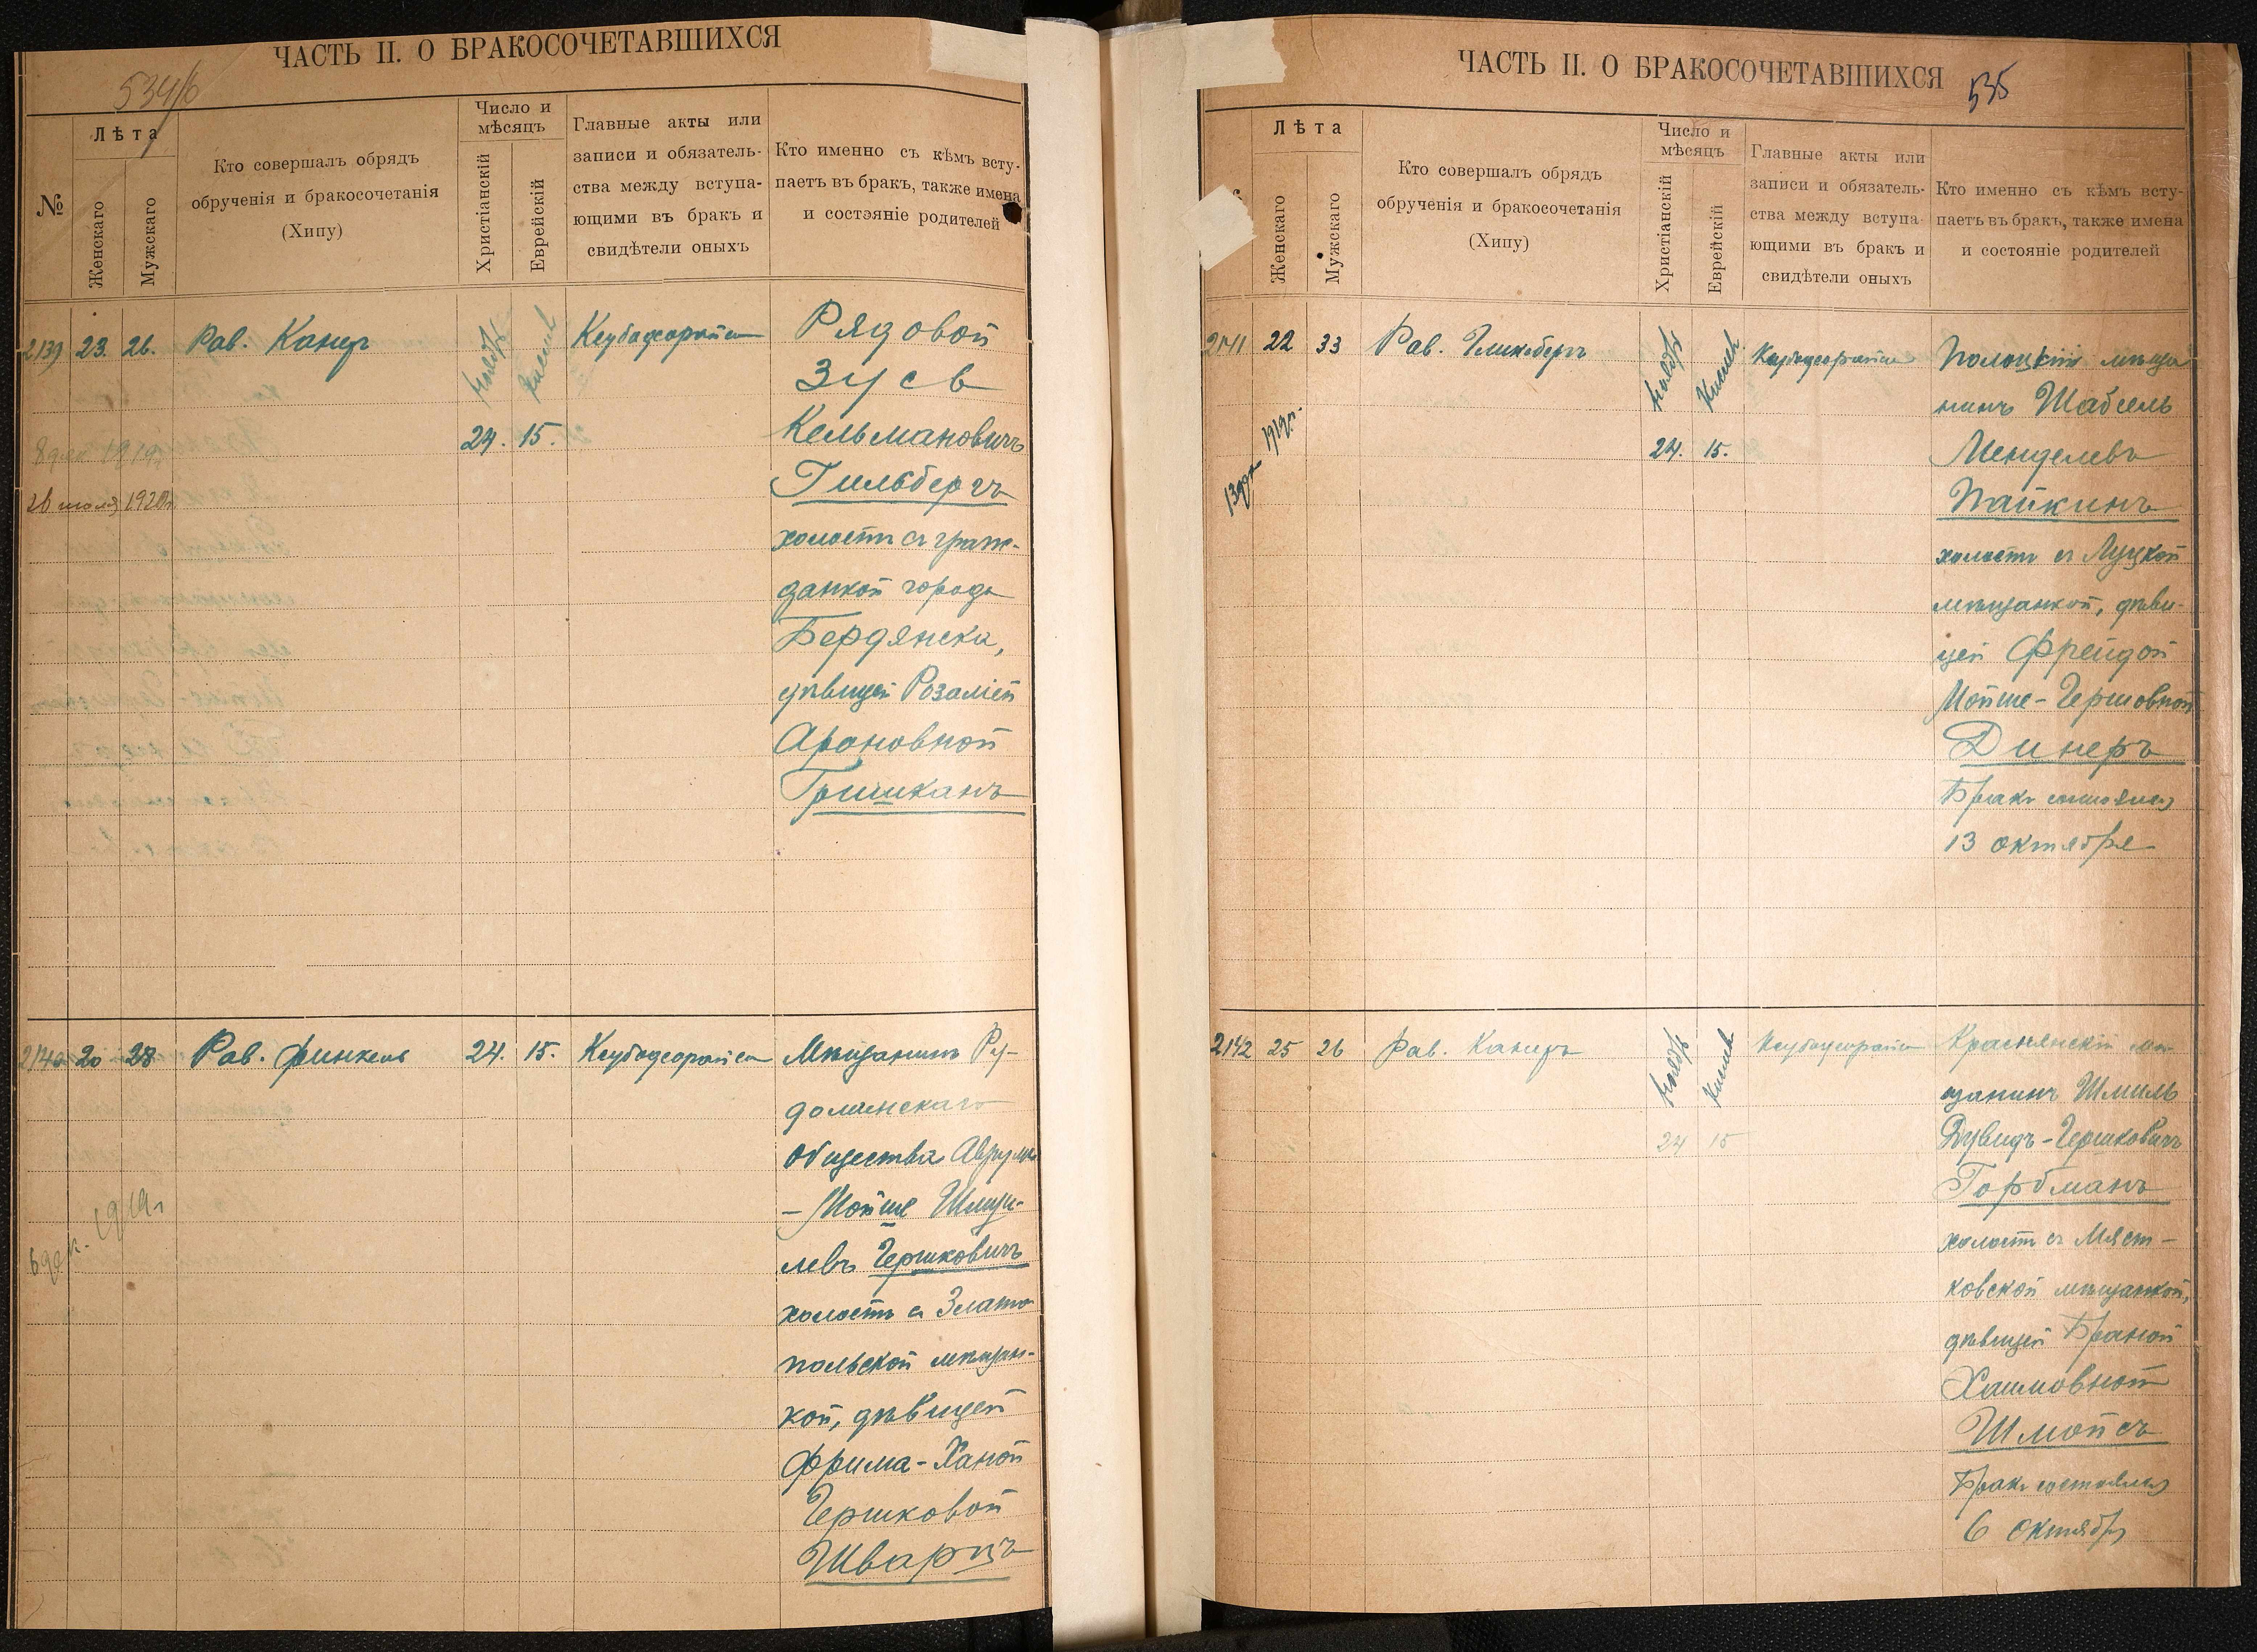 ЧАСТЬ II. О БРАКОСОЧЕТАВШИХСЯ
№
Лѣта
Женскаго
Мужскаго
Кто совершалъ обрядъ
обрученія и бракосочетанія
(Хипу)
Число и
мѣсяцъ
Христіанскій
Еврейскій
Главные акты или
записи и обязатель-
ства между вступа-
ющими въ бракъ и
свидѣтели оныхъ
Кто именно съ кѣмъ всту-
паетъ въ бракъ, также имена
и состояніе родителей
2139 23. 26. Рав. Канеръ
Ноябрь Кислев
24. 15.
Рядовой
Зусь
Кельмановичъ
Гильбергъ
холостъ съ граж-
данкой города
Бердянска,
дѣвицей Розаліей
Ароновной
Гришканъ
26 1920г.
2140 20 28 Рав. Финкель 24. 15.
Мѣщанинъ Ру-
долинскаго
общества Аврумъ
-Мойше Шмуи-
левъ Гершковичъ
холостъ съ Злато-
польской мѣщан-
кой, дѣвицей
Фрима-Ханой
Гершковой
Шварцъ
6 дек. 1919г
ЧАСТЬ II. О БРАКОСОЧЕТАВШИХСЯ
535
Лѣта
Женскаго
Мужскаго
Кто совершалъ обрядъ
обрученія и бракосочетанія
(Хипу)
Число и
мѣсяцъ
Христіанскій
Еврейскій
Главные акты или
записи и обязатель-
ства между вступа-
ющими въ бракъ и
свидѣтели оныхъ
Кто именно съ кѣмъ всту-
паетъ въ бракъ, также имена
и состояніе родителей
2141 22 33 Рав. Гликсбергъ
Ноябрь Кислев
24. 15.
Полоцкій мѣща
нинъ Шабсель
Менделевъ
Пайкинъ
холостъ съ Луцкой
мѣщанкой, дѣви-
цей Фрейдой
Мойше-Гершовной
Динеръ
Бракъ состоялся
13 октября
13 дек 1919г.
2142 25 26 Рав. Канеръ
Ноябрь Кислев
24 15
Краснянскій мѣ-
щанинъ Шмиль
Дувидъ-Гершковичъ
Горбманъ
холостъ съ Мяст-
ковской мѣщанкой,
дѣвицей Браной
Хаимовной
Шмойсъ
Бракъ состоялся
6 Октября